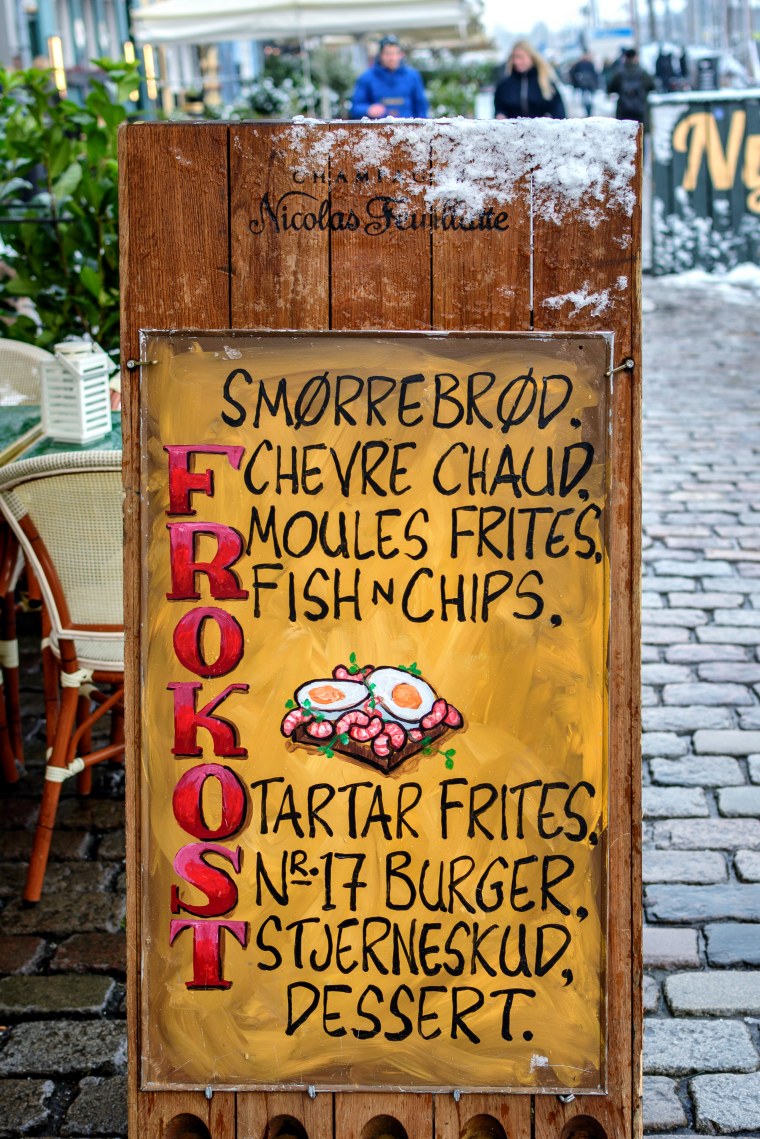 CHAMPAGNE
Nicolas Feuillatte
Ny
SMØRREBRØD.
CHEVRE CHAUD,
MOULES FRITES,
FISH N CHIPS,
FROKOST
TARTAR FRITES,
NR. 17 BURGER,
STJERNESKUD,
DESSERT.